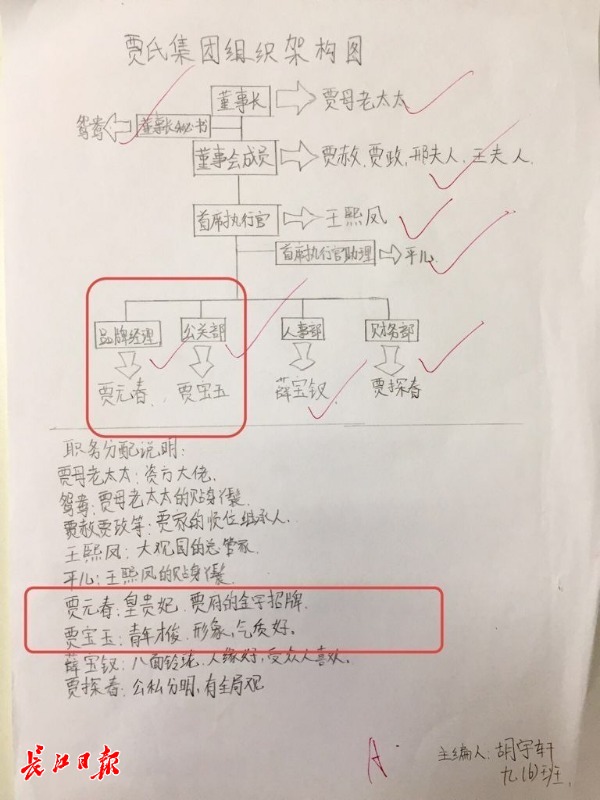 贾氏集团组织架构图
董事长 贾母老太太
鸳鸯 董事长秘书
董事会成员 贾赦、贾政、邢夫人、王夫人.
首席执行官 王熙凤
首席执行官助理 平儿
品牌经理 公关部 人事部 财务部
贾元春 贾宝玉 薛宝钗 贾探春
职务分配说明:
贾母老太太:资方大佬.
鸳鸯:贾母老太太的贴身丫鬟
贾赦贾政等:贾家的顺位继承人.
王熙凤:大观园的总管家.
平儿:王熙凤的贴身丫鬟
贾元春:皇贵妃.贾府的金字招牌.
贾宝玉:青年才俊、形象、气质好.
薛宝钗:八面铃珑.人缘好,受众人喜欢.
贾探春:公私分明,有全局观
A
主编人:胡宇轩
九(6)班
长江日报